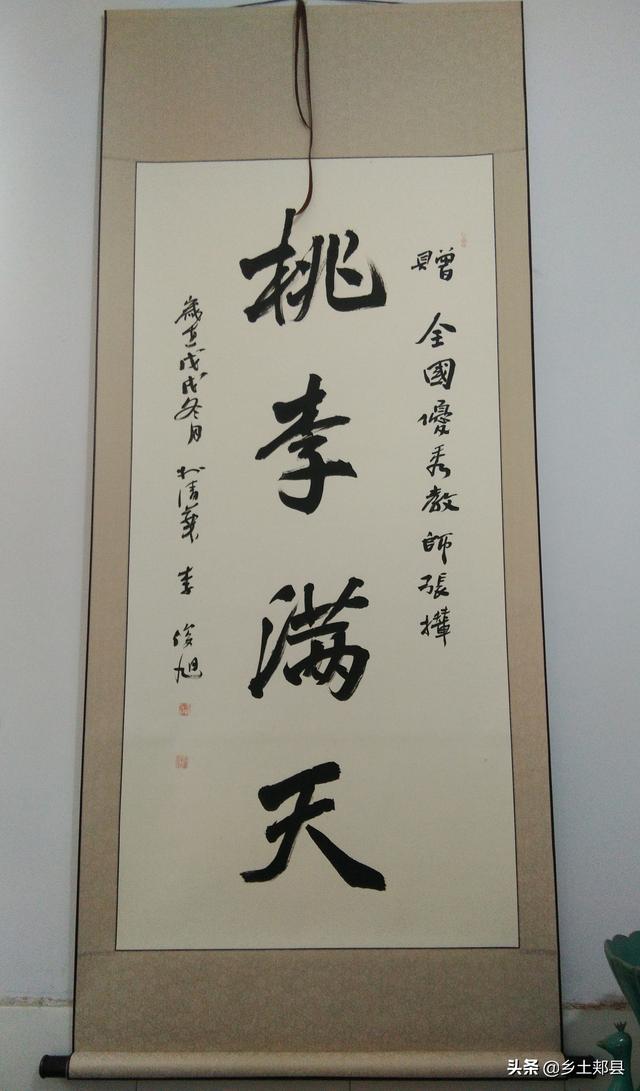 贈 全國優秀教師張攆
桃李满天
歲在戊戌冬月於清華 李俊旭
头条@乡土郏县